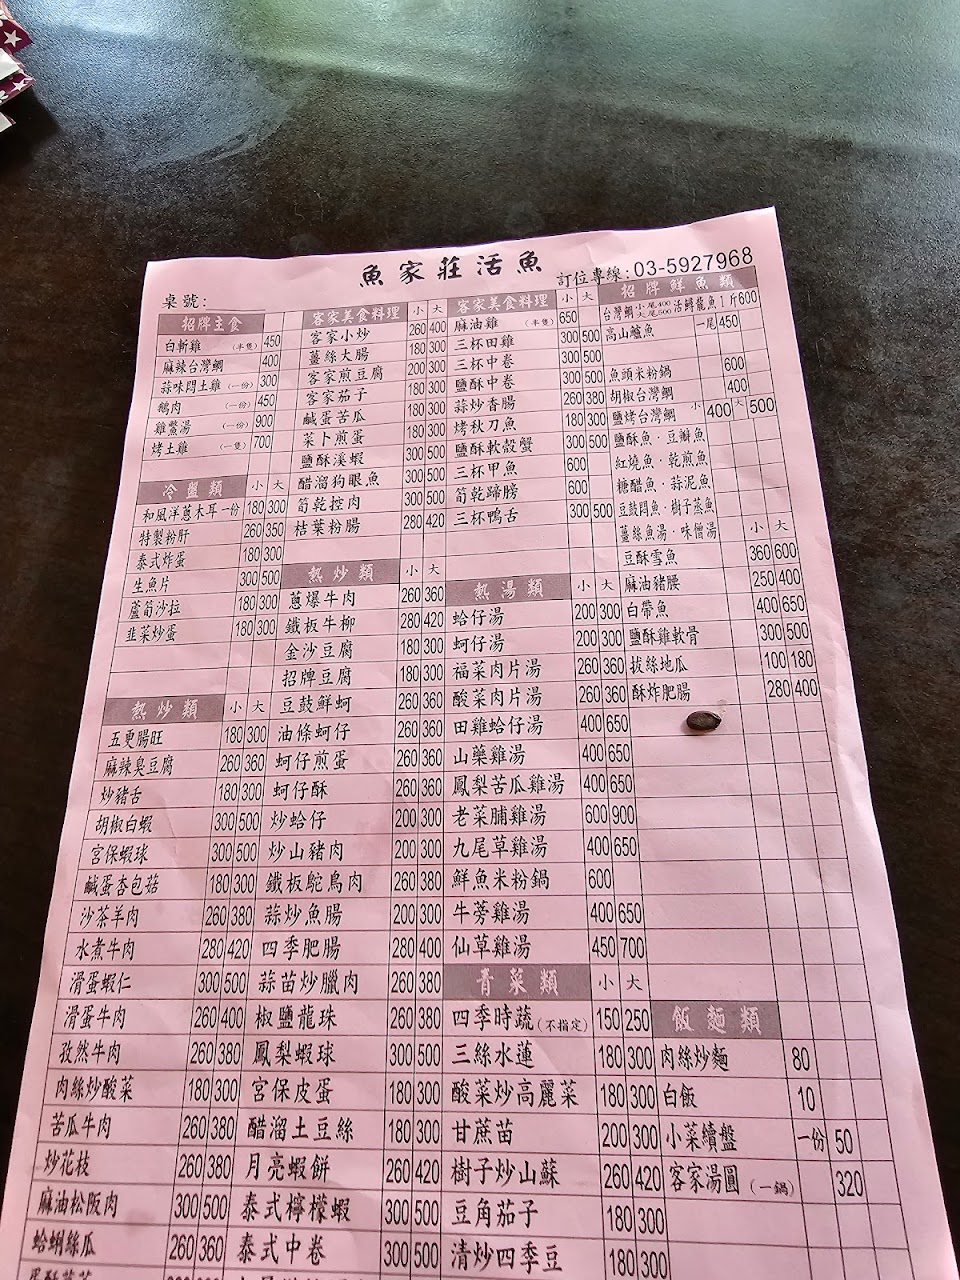 魚家莊活魚
訂位專線：03-5927968
桌號：
招牌主食
白斬雞（半隻） 450
麻辣台灣鯛 400
蒜味悶土雞（一份） 300
鵝肉（一份） 450
雞鱉湯（一份） 900
烤土雞（一隻） 700
冷盤類 小 大
和風洋蔥木耳一份 180 300
特製粉肝 260 350
泰式炸蛋 180 300
生魚片 300 500
蘆筍沙拉 180 300
韭菜炒蛋 180 300
熱炒類 小 大
五更腸旺 180 300
麻辣臭豆腐 260 360
炒豬舌 180 300
胡椒白蝦 300 500
宮保蝦球 300 500
鹹蛋杏包菇 180 300
沙茶羊肉 260 380
水煮牛肉 280 420
滑蛋蝦仁 300 500
滑蛋牛肉 260 400
孜然牛肉 260 380
肉絲炒酸菜 180 300
苦瓜牛肉 260 380
炒花枝 260 380
麻油松阪肉 300 500
蛤蜊絲瓜 260 360
客家美食料理 小 大
客家小炒 260 400
薑絲大腸 180 300
客家煎豆腐 200 300
客家茄子 180 300
鹹蛋苦瓜 180 300
菜卜煎蛋 180 300
鹽酥溪蝦 300 500
醋溜狗眼魚 300 500
筍乾控肉 300 500
桔葉粉腸 280 420
熱炒類 小 大
蔥爆牛肉 260 360
鐵板牛柳 280 420
金沙豆腐 180 300
招牌豆腐 180 300
豆鼓鮮蚵 260 360
油條蚵仔 260 360
蚵仔煎蛋 260 360
蚵仔酥 260 360
炒蛤仔 200 300
炒山豬肉 200 300
鐵板鴕鳥肉 260 380
蒜炒魚腸 200 300
四季肥腸 280 400
蒜苗炒臘肉 260 380
椒鹽龍珠 260 380
鳳梨蝦球 300 500
宮保皮蛋 180 300
醋溜土豆絲 180 300
月亮蝦餅 260 420
泰式檸檬蝦 300 500
泰式中卷 300 500
客家美食料理 小 大
麻油雞（半隻） 650
三杯田雞 300 500
三杯中卷 300 500
鹽酥中卷 300 500
蒜炒香腸 260 380
烤秋刀魚 180 300
鹽酥軟殼蟹 300 500
三杯甲魚 600
筍乾蹄膀 600
三杯鴨舌 300 500
熱湯類 小 大
蛤仔湯 200 300
蚵仔湯 200 300
福菜肉片湯 260 360
酸菜肉片湯 260 360
田雞蛤仔湯 400 650
山藥雞湯 400 650
鳳梨苦瓜雞湯 400 650
老菜脯雞湯 600 900
九尾草雞湯 400 650
鮮魚米粉鍋 600
牛蒡雞湯 400 650
仙草雞湯 450 700
青菜類 小 大
四季時蔬（不指定） 150 250
三絲水蓮 180 300
酸菜炒高麗菜 180 300
甘蔗苗 200 300
樹子炒山蘇 260 420
豆角茄子 180 300
清炒四季豆 180 300
招牌鮮魚類
台灣鯛 小尾400 大尾500 活鱘龍魚1斤600
高山鱸魚 一尾 450
魚頭米粉鍋 600
胡椒台灣鯛 400
鹽烤台灣鯛 小 400 大 500
鹽酥魚．豆瓣魚
紅燒魚．乾煎魚
糖醋魚．蒜泥魚
豆鼓悶魚．樹子蒸魚
薑絲魚湯．味噌湯 小 大
豆酥雪魚 360 600
麻油豬腰 250 400
白帶魚 400 650
鹽酥雞軟骨 300 500
拔絲地瓜 100 180
酥炸肥腸 280 400
飯麵類
肉絲炒麵 80
白飯 10
小菜續盤 一份 50
客家湯圓（一鍋） 320